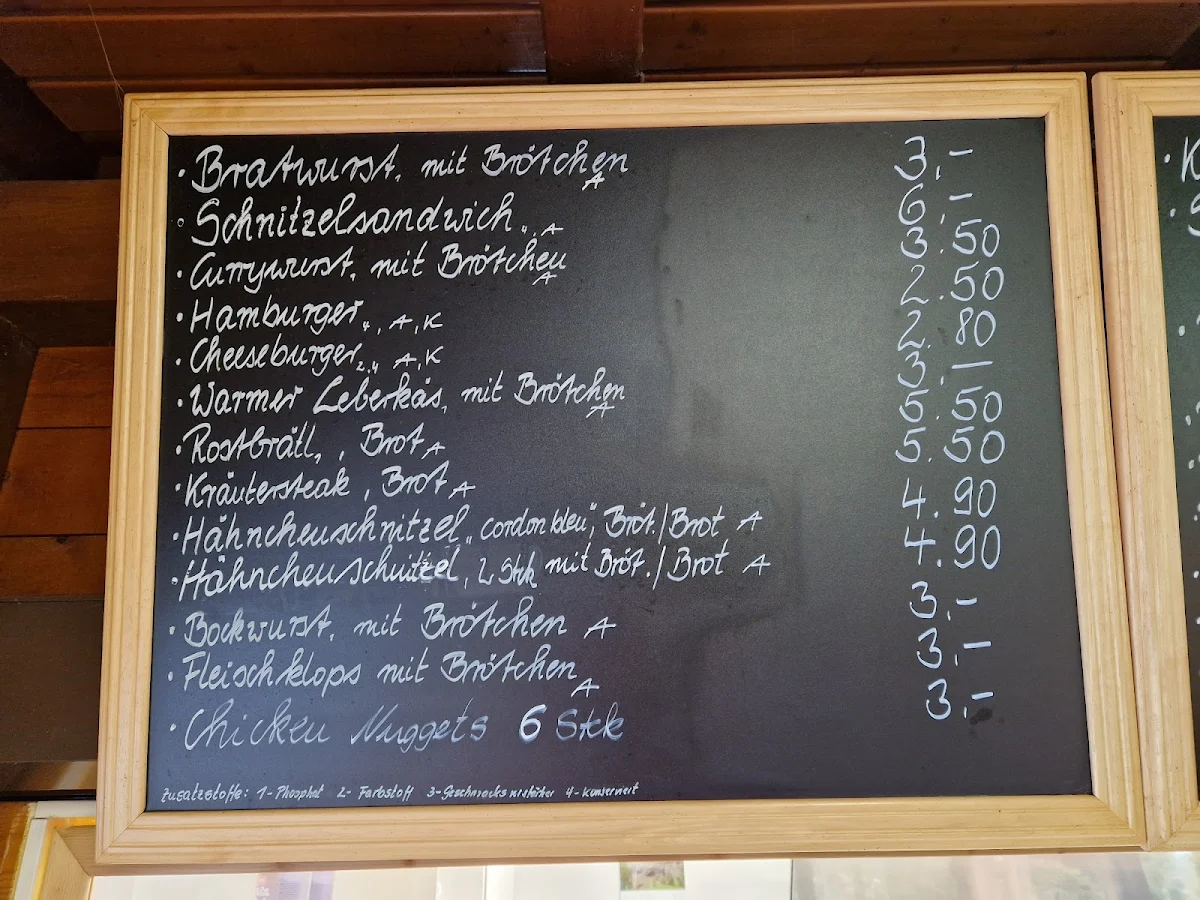 · Bratwurst, mit Brötchen A 3,-
· Schnitzelsandwich 4, A 6,-
· Currywurst, mit Brötchen A 3.50
· Hamburger 4, A, K 2.50
· Cheeseburger 2,4 A, K 2.80
· Warmer Leberkäs, mit Brötchen A 3,-
· Rostbrätl, , Brot A 5.50
· Kräutersteak, Brot A 5.50
· Hähnchenschnitzel „cordon bleu", Bröt./Brot A 4.90
· Hähnchenschnitzel, 2 Stck mit Bröt./Brot A 4.90
· Bockwurst, mit Brötchen A 3,-
· Fleischklops mit Brötchen A 3,-
· Chicken Nuggets 6 Stck 3,-
Zusatzstoffe: 1-Phosphat 2-Farbstoff 3-Geschmacksverstärker 4-konserviert
· K
· S